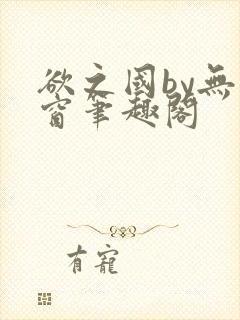 欲之國by無
窗筆趣閣
有寵